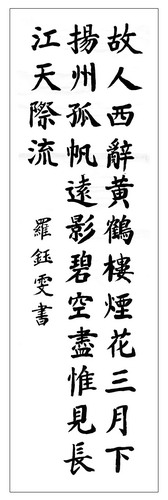 故人西辭黃鶴樓煙花三月下
揚州孤帆遠影碧空盡惟見長
江天際流
羅鈺雯書